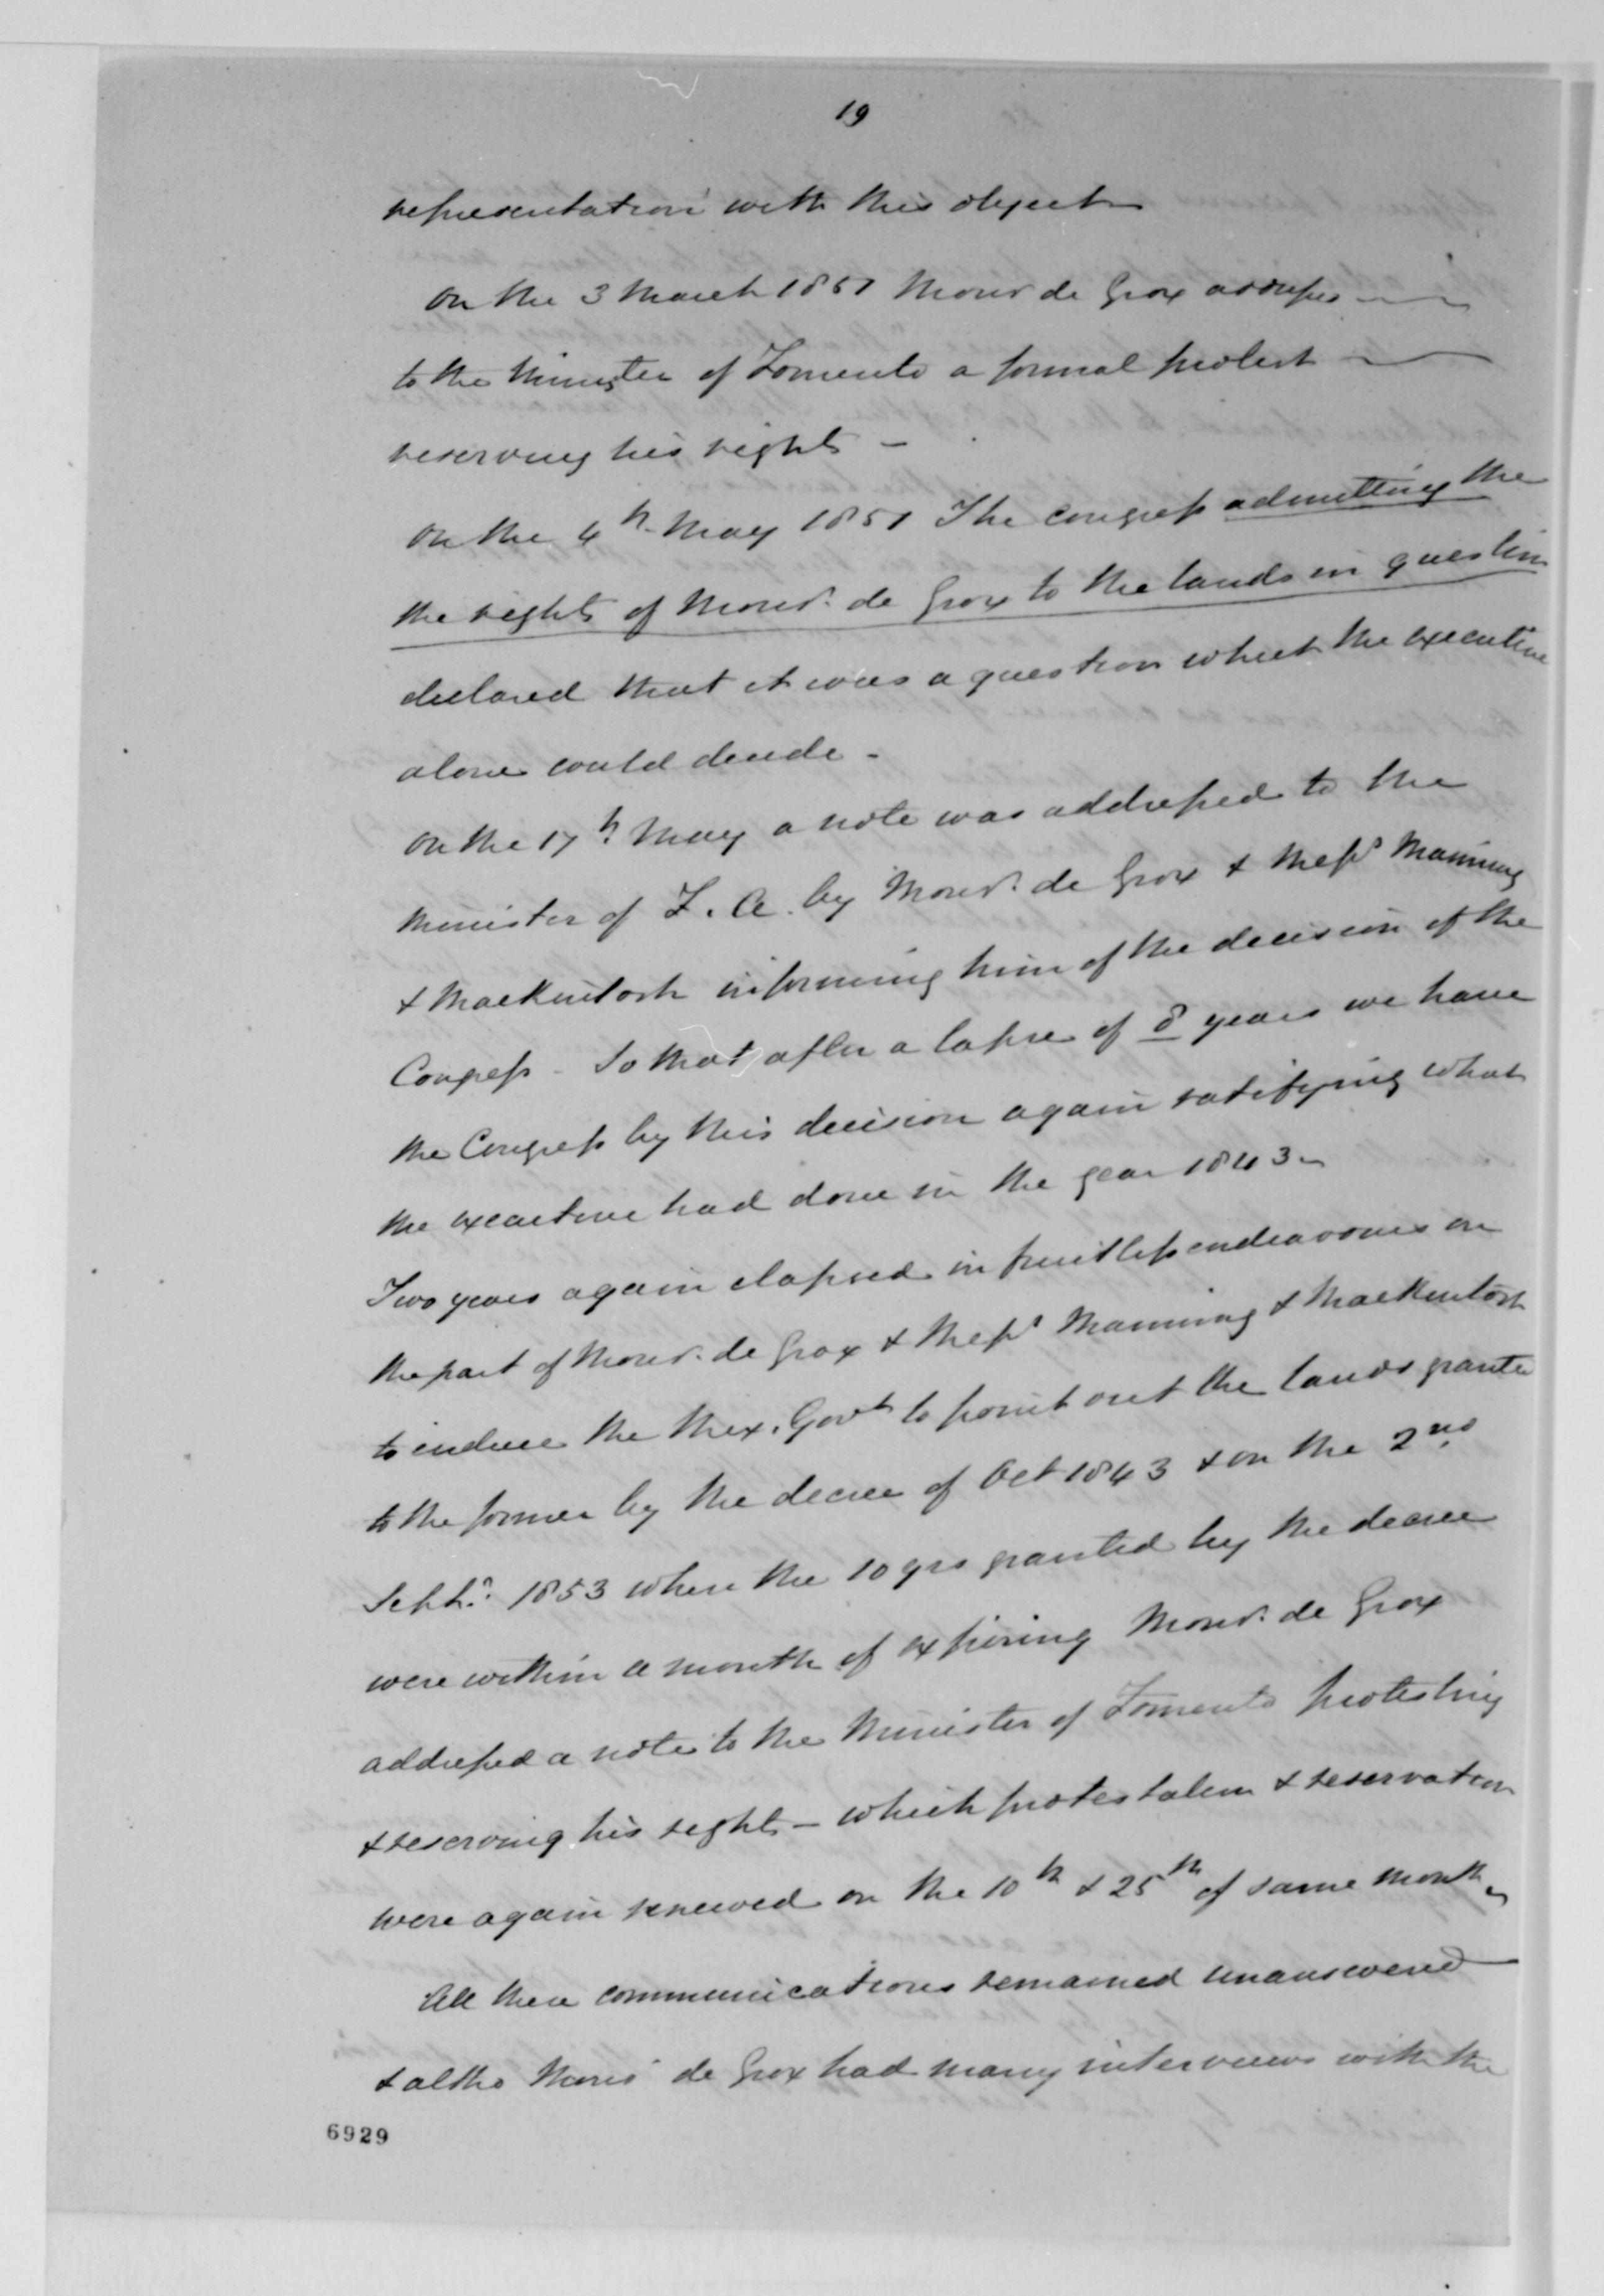 19
representation with this object
On the 3 March 1851 Monsr de Grox addresses
to the Minister of Fomento a formal protest
reserving his rights –
On the 4th May 1851 The Congress admitting the
the rights of Monsr. de Grox to the lands in question
declared that it was a question which the executive
alone could decide –
On the 17th May a note was addressed to the
Minister of F. A. by Monsr. de Grox & Messrs Manning
& Mackintosh informing him of the decision of the
Congress – So that after a lapse of 8 years we have
the Congress by this decision again ratifying what
the executive had done in the year 1843 –
Two years again elapsed in fruitless endeavours on
the part of Monsr. de Grox & Messrs Manning & Mackintosh
to induce the Mex. Govt to point out the lands grante
to the former by the decree of Oct 1843 & on the 2nd
Septr. 1853 when the 10 yrs granted by the decree
were within a month of expiring Monsr. de Grox
addressed a note to the Minister of Fomento protesting
& reserving his rights – which protestation & reservation
were again renewed on the 10th & 25th of same month –
All these communications remained unanswered
& altho Monsr de Grox had many interviews with the
6929